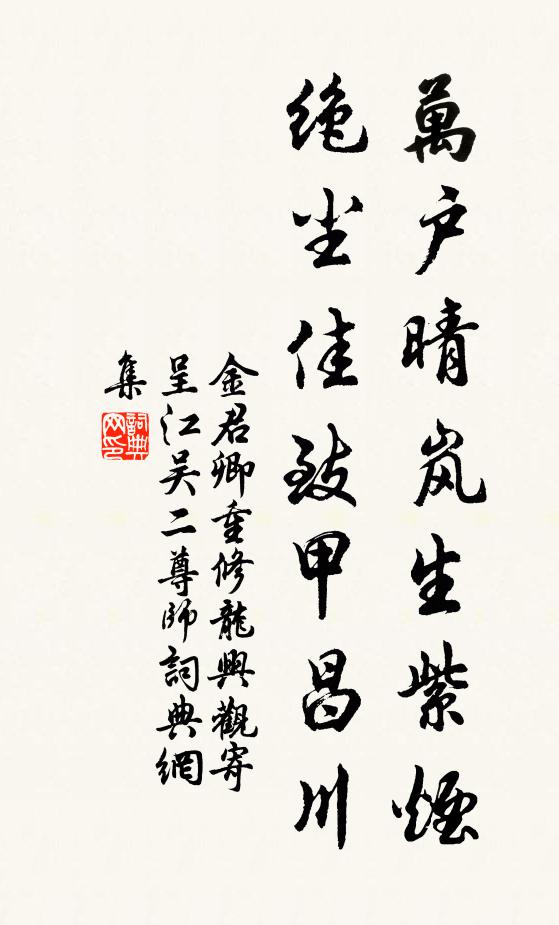 萬户晴岚生紫煙
绝尘佳致甲昌川
金君卿重修龍興觀寄
呈江吴二尊師詞典網
集
詞典
网印